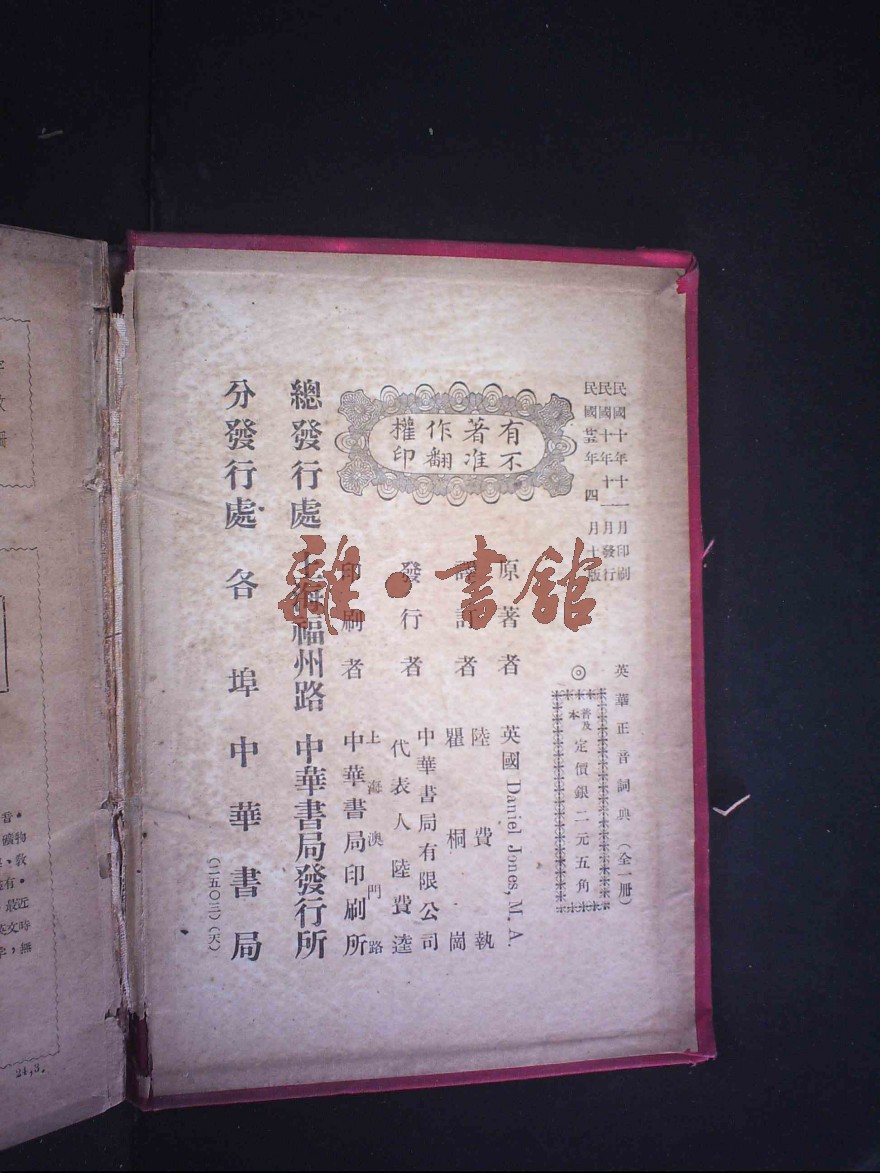 民國十年十一月印刷
民國十年十二月發行
民國廿五年四月十版
英華正音詞典（全一冊）
◎普及本定價銀二元五角
有著作權
不准翻印
原著者 英國Daniel Jones, M. A.
譯訂者 陸費執
瞿桐崗
發行者 中華書局有限公司
代表人陸費逵
印刷者 上海澳門路
中華書局印刷所
總發行處 上海福州路 中華書局發行所
分發行處 各埠中華書局
（二五〇三）（天）
雜·書館
音。
礦物
有。
最近
英文時
24,3.